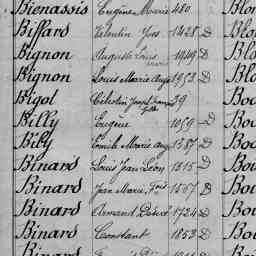 Bienassis Eugène Marie 480 Blon
Biffard Valentin Yves 1428 D Blo
Bignon Auguste Louis 1949 D Blo
Bignon Louis Marie Aug 1953 D Blo
Bigot Célestin Joseph 39 Boc
Billy Eugène 1059 D Boc
Bily Louis Marie Ang 1387 D Boc
Binard Louis Jean Léon 1315 D Boc
Binard Jean Marie Fois 1557 D Boc
Binard Armand Désiré 1724 D Bou
Binard Constant 1853 D Bou
Binard